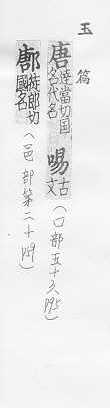 玉篇
唐達當切国名代名 啺古文(口部五十六 P95)
鄌徒郎切國名(邑部第二十)